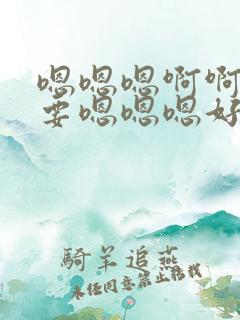 嗯嗯嗯啊啊
要嗯嗯嗯好
騎羊追燕
未经同意禁止转载